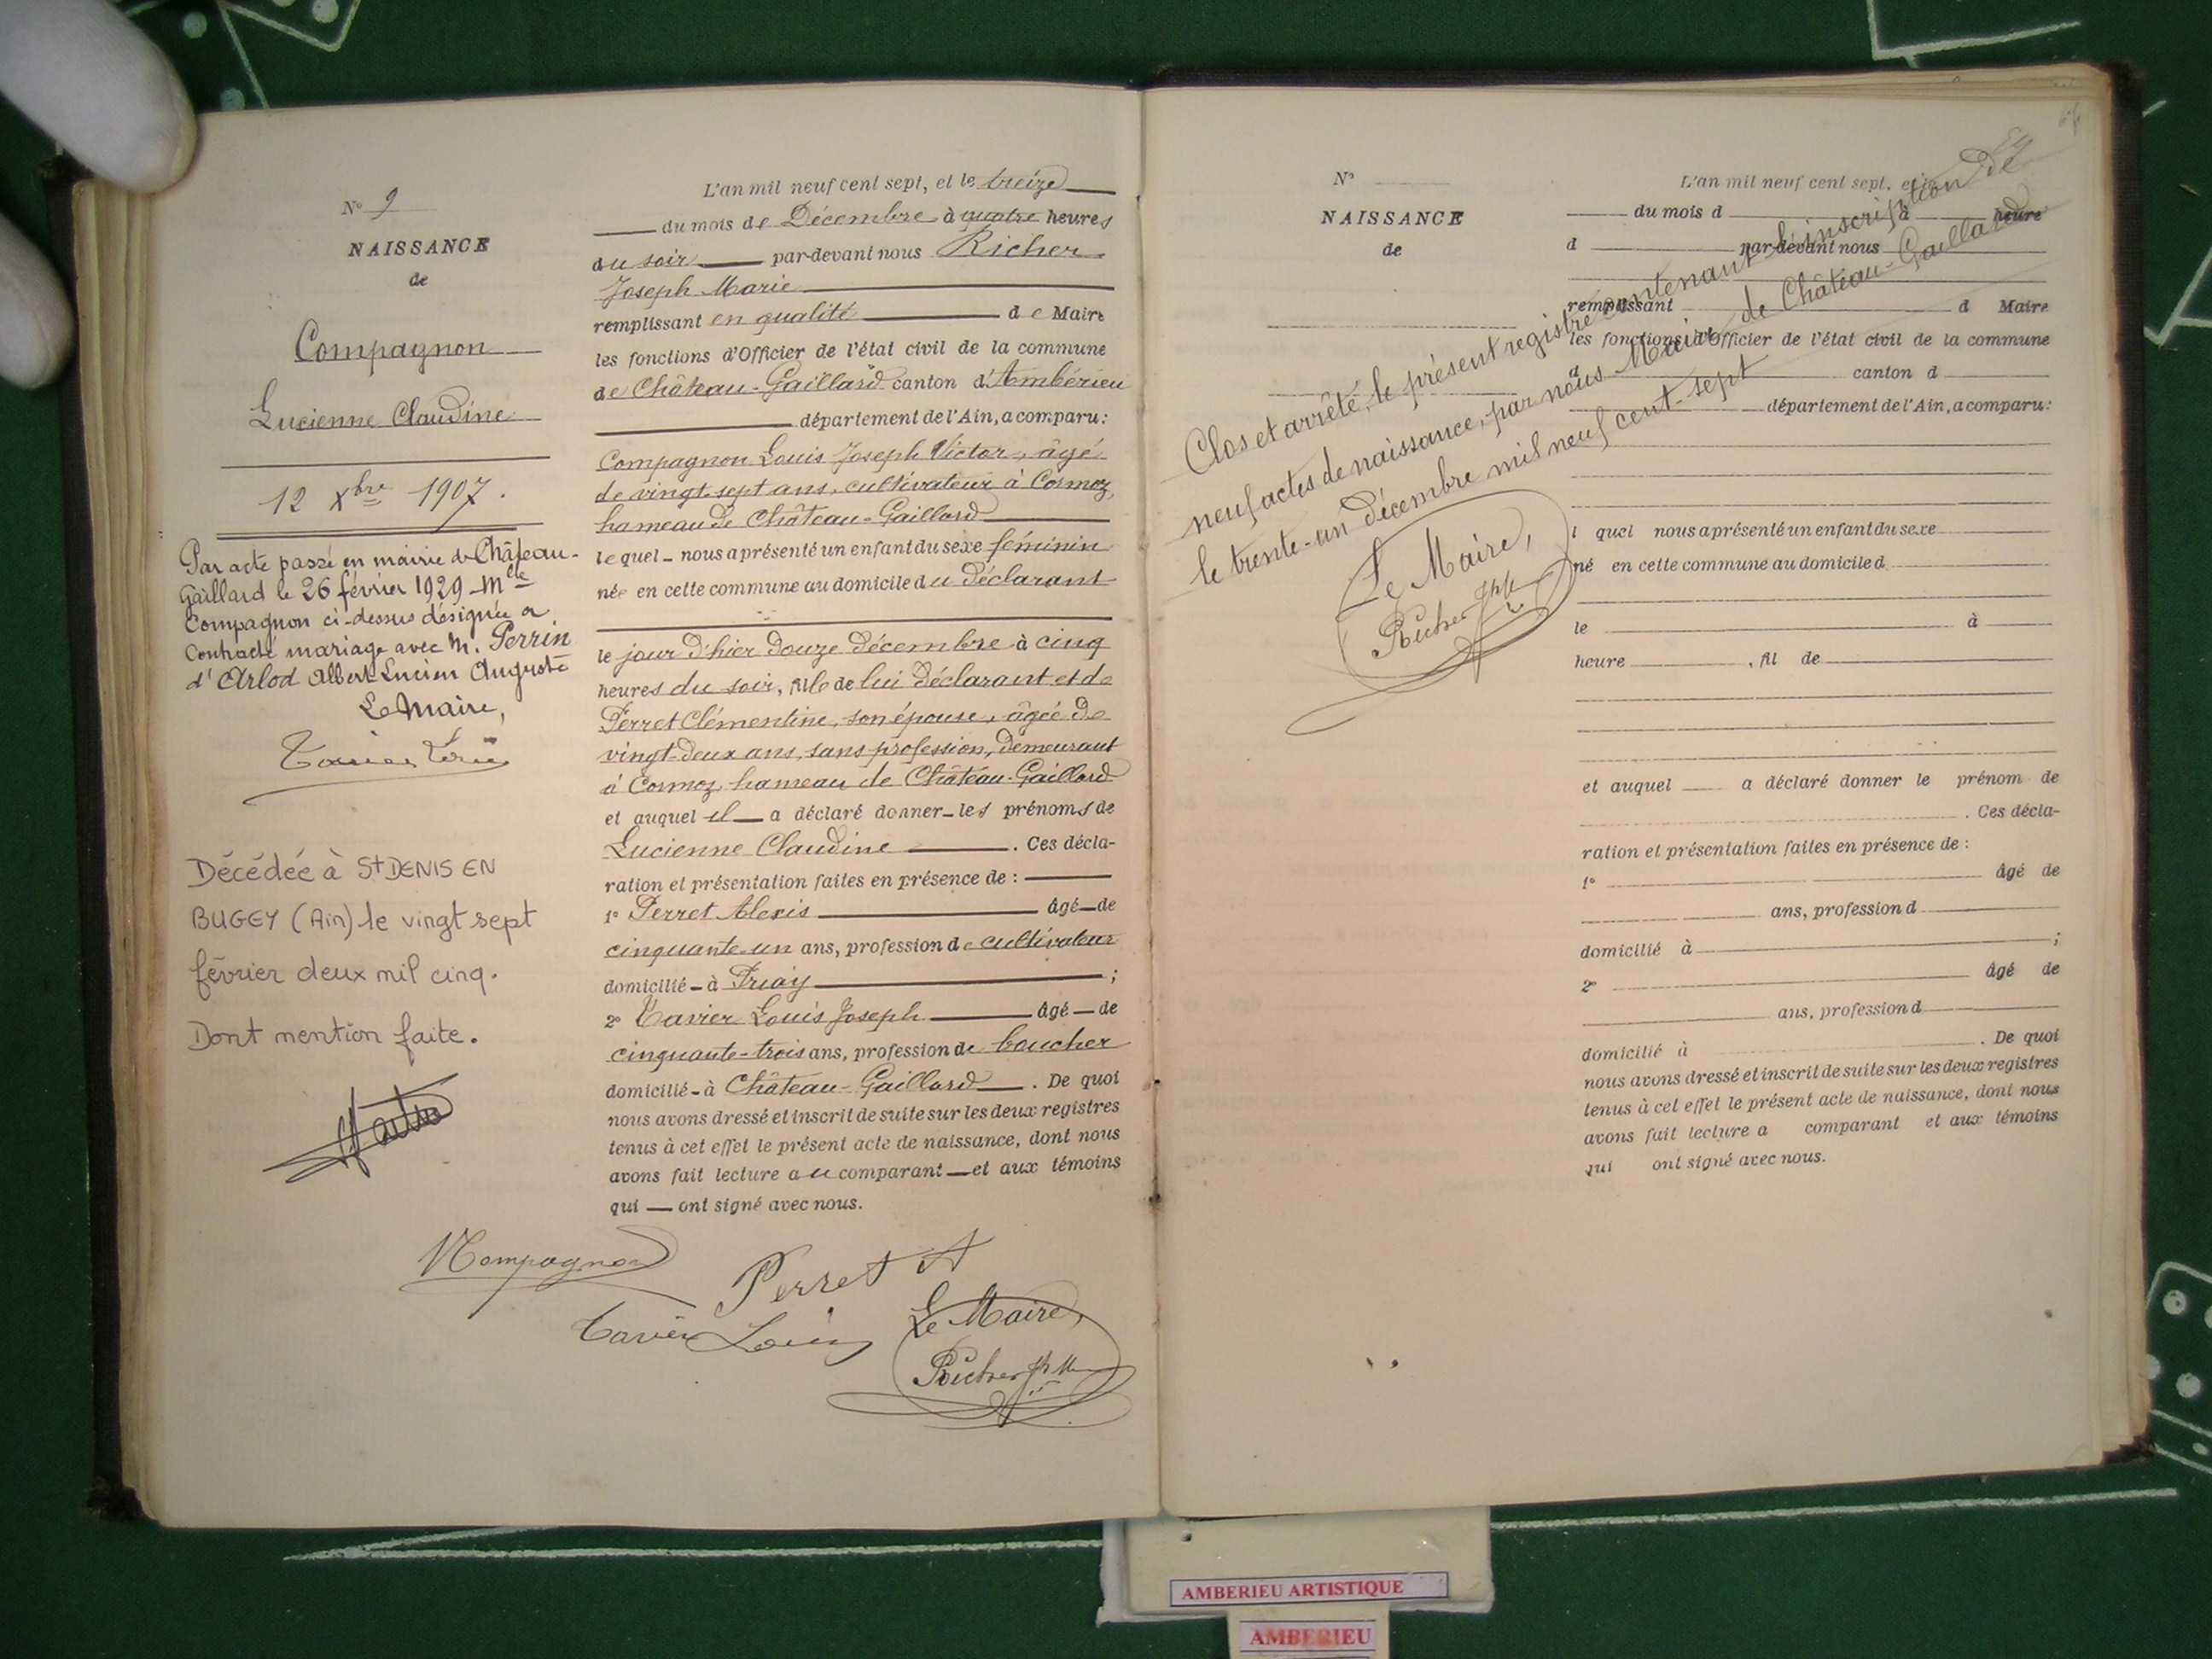 N° 9
NAISSANCE
de
Compagnon
Lucienne Claudine
12 Xbre 1907.
Par acte passé en mairie de Château-
Gaillard le 26 février 1929 - Mlle
Compagnon ci-dessus désignée a
contracté mariage avec M. Perrin
d'Arlod Albert Lucien Auguste
Le Maire,
Tavier Louis
Décédée à St DENIS EN
BUGEY (Ain) le vingt sept
février deux mil cinq.
Dont mention faite.
L'an mil neuf cent sept, et le treize
du mois de Décembre à quatre heures
du soir par-devant nous Richer
Joseph Marie
remplissant en qualité de Maire
les fonctions d'Officier de l'état civil de la commune
de Château-Gaillard canton d'Ambérieu
département de l'Ain, a comparu:
Compagnon Louis Joseph Victor, âgé
de vingt-sept ans, cultivateur à Cormoz,
hameau de Château-Gaillard
lequel - nous a présenté un enfant du sexe féminin
née en cette commune au domicile du déclarant
le jour d'hier douze décembre à cinq
heures du soir, fille de lui déclarant et de
Perret Clémentine, son épouse, âgée de
vingt-deux ans, sans profession, demeurant
à Cormoz hameau de Château-Gaillard
et auquel il a déclaré donner - les prénoms de
Lucienne Claudine. Ces décla-
ration et présentation faites en présence de :
1° Perret Alexis âgé - de
cinquante-un ans, profession de cultivateur
domicilié - à Priay ;
2° Tavier Louis Joseph âgé - de
cinquante-trois ans, profession de boucher
domicilié - à Château-Gaillard. De quoi
nous avons dressé et inscrit de suite sur les deux registres
tenus à cet effet le présent acte de naissance, dont nous
avons fait lecture au comparant - et aux témoins
qui - ont signé avec nous.
VCompagnon
Perret A
Tavier Louis
Le Maire,
Richer Jph M
N°
NAISSANCE
de
L'an mil neuf cent sept, et le
du mois d à heure
d par-devant nous
remplissant d Maire
les fonctions d'Officier de l'état civil de la commune
d canton d
département de l'Ain, a comparu:
l quel nous a présenté un enfant du sexe
né en cette commune au domicile d
le à
heure , fil de
et auquel a déclaré donner le prénom de
. Ces décla-
ration et présentation faites en présence de :
1° âgé de
ans, profession d
domicilié à ;
2° âgé de
ans, profession d
domicilié à . De quoi
nous avons dressé et inscrit de suite sur les deux registres
tenus à cet effet le présent acte de naissance, dont nous
avons fait lecture a comparant et aux témoins
qui ont signé avec nous.
Clos et arrêté, le présent registre contenant l'inscription de
neuf actes de naissance, par nous Maire de Château-Gaillard
le trente-un décembre mil neuf cent-sept
Le Maire,
Richer Jph M
AMBERIEU ARTISTIQUE
AMBERIEU